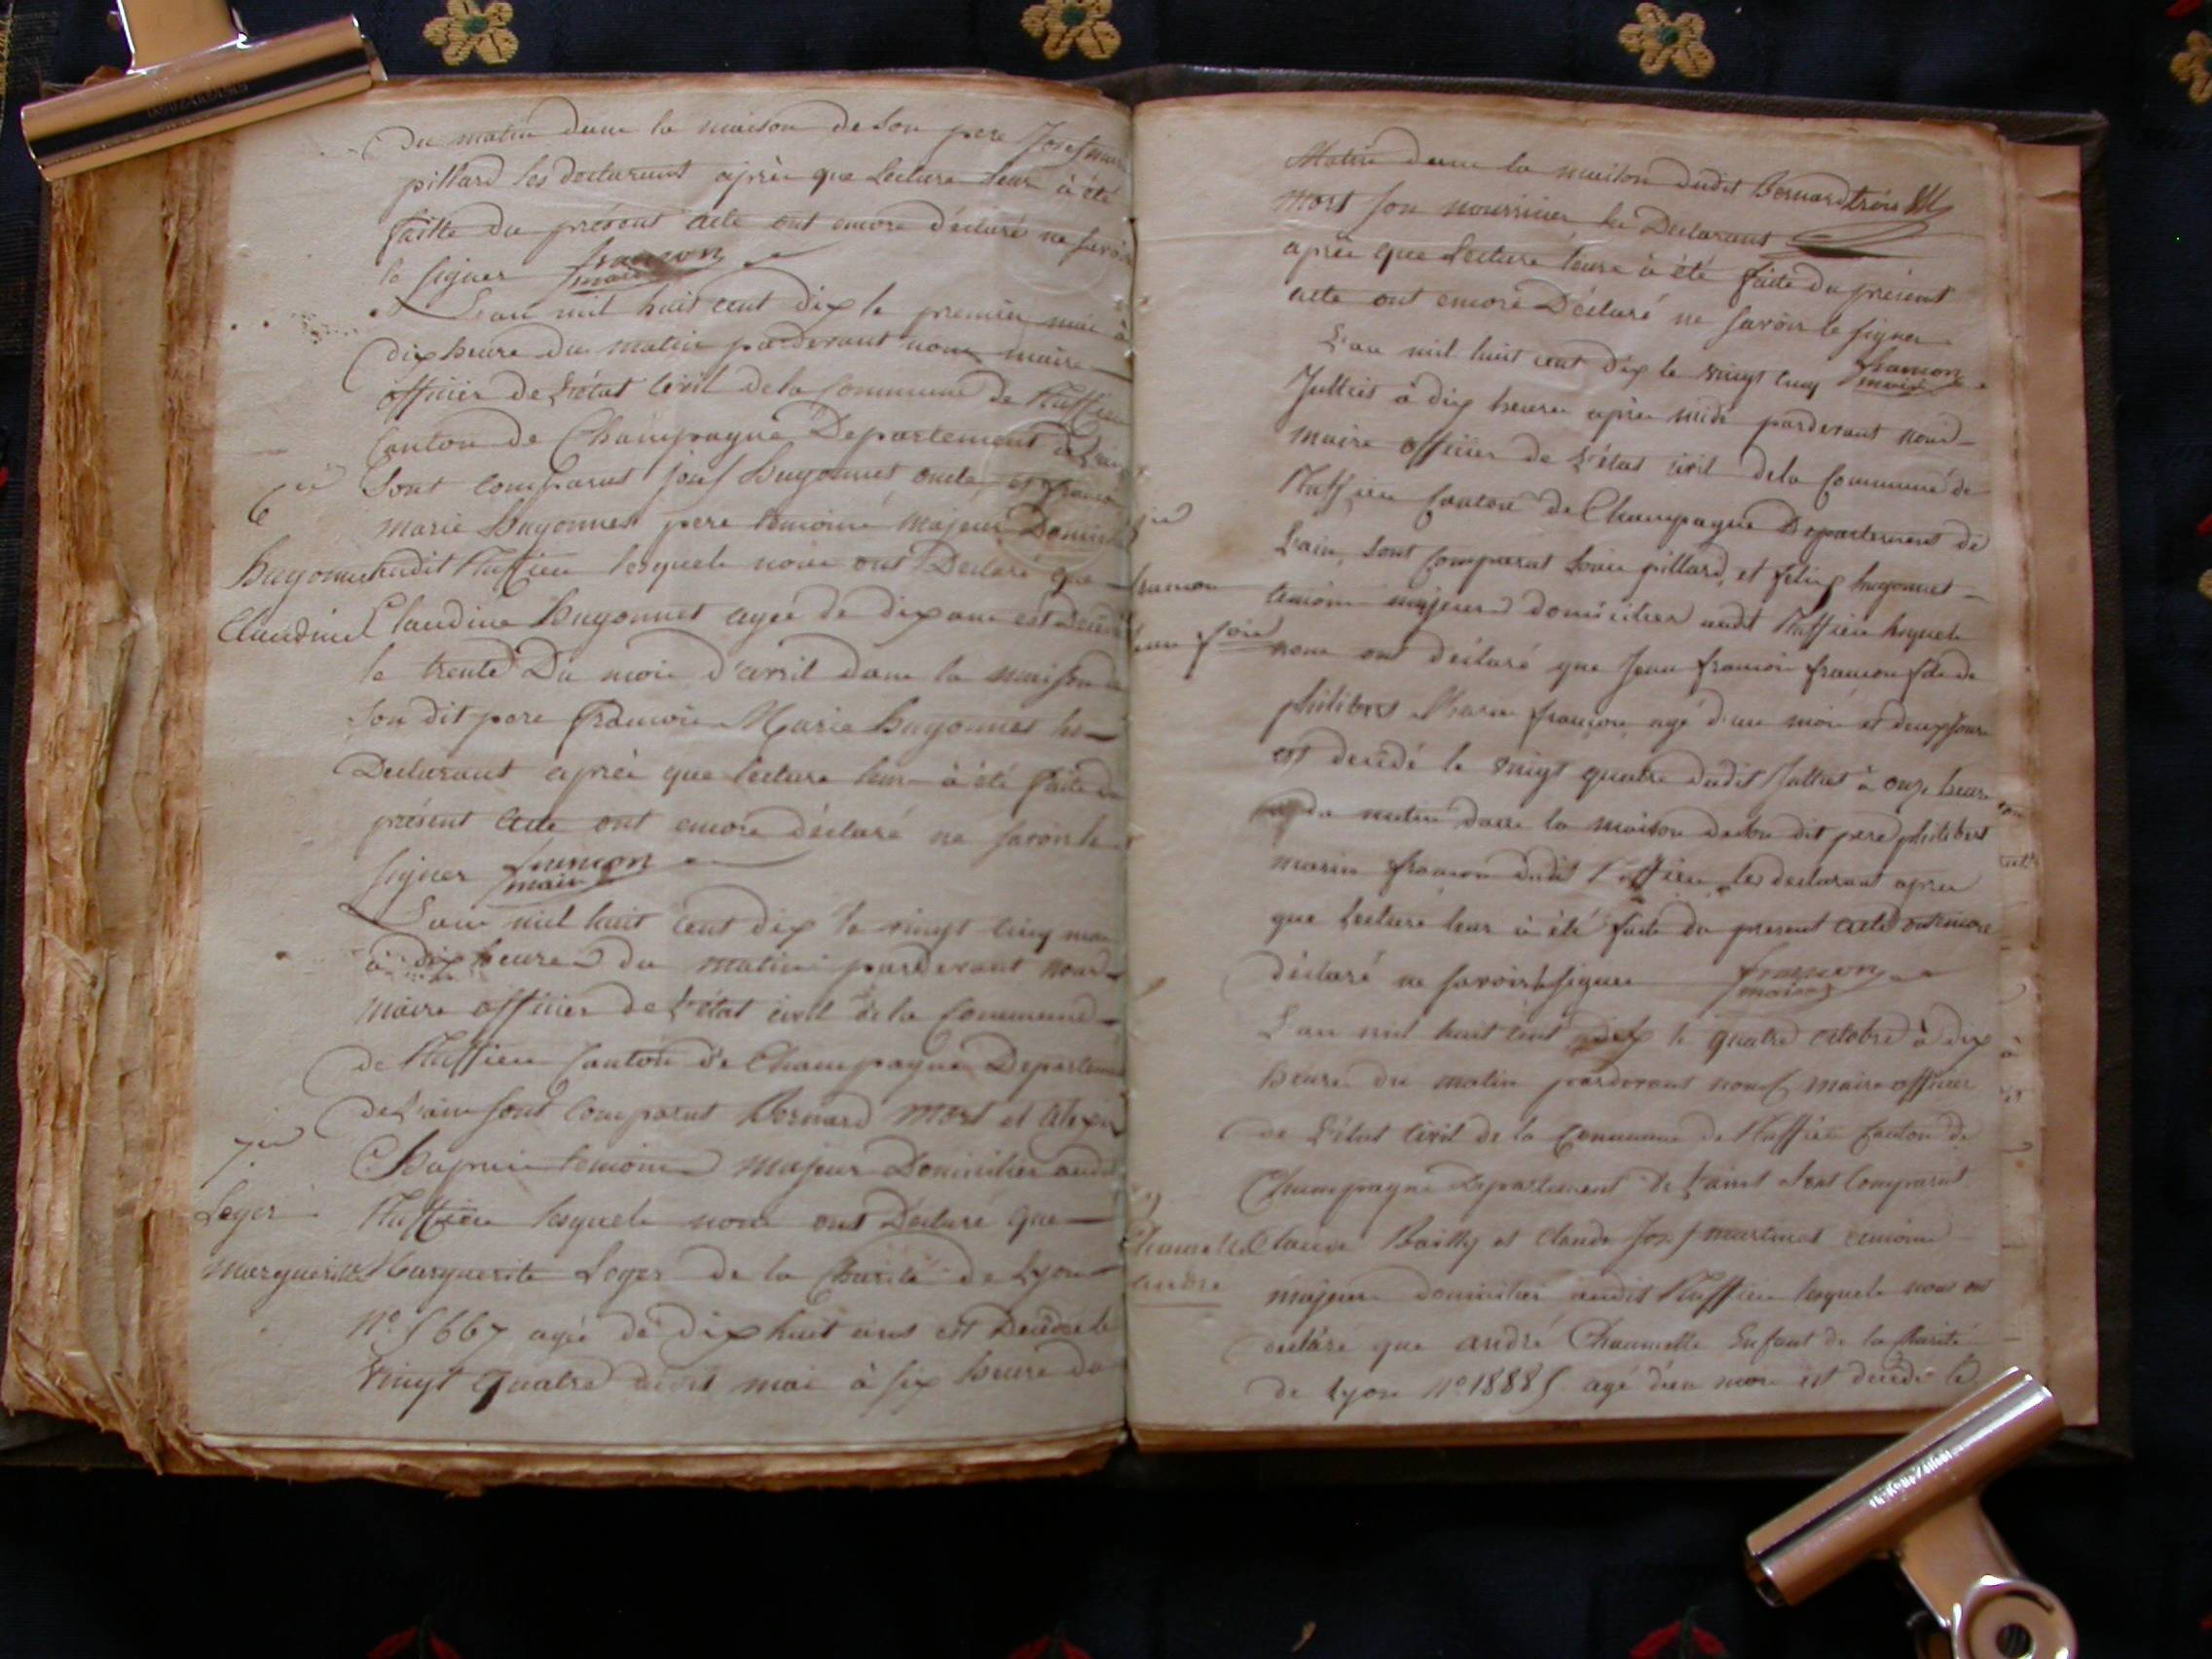 Du matin dans la maison de son pere Josef marie
pillard les declarants après que Lecture leur à été
faitte du présent acte ont encore déclaré ne savoir
le signer francon
maire
L'an mil huit cent dix le premier mai à
dix heure du matin pardevant nous maire
officier de L'état Civil de la Commune de Ruffieu
Canton de Champagne Departement de L'ain
Sont comparut josef hugonnet oncle et francois
6me
marie hugonnet pere temoins majeur Domicilié
hugonnet audit Ruffieu lesquels nous ont Declaré que
Claudine Claudine hugonnet agée de dix ans est décédé
le trente Du mois d'avril dans la maison de
son dit pere francois Marie hugonnet les
Declarant après que lecture leur à été faite du
présent acte ont encore déclaré ne savoir le
signer francon
maire
L'an mil huit cent dix le vingt cinq mai
à dix heures du matin pardevant nous
maire officier de L'état civil de la Commune
de Ruffieu Canton de Champagne Departement
de L'ain sont comparut Bernard Mort et
7me
temoins majeur Domicilier audit
Leger Ruffieu lesquels nous ont Déclaré que
Marguerite Marguerite Leger de la Charité de Lyon
N° 5667 agée de dix huit ans est Decedée le
vingt quatre dudit mai à six heure du
Matin dans la maison dudit Bernard
mort son nourricier les Declarants
après que Lecture leurs à été faite du présent
acte ont encore Déclaré ne savoir le signer
L'an mil huit cent dix le vingt cinq francon
maire
Juillet à dix heures après midi pardevant nous
maire officier de L'état civil de la Commune de
Ruffieu Canton de Champagne Departement de
L'ain, sont comparut Louis pillard, et felix hugonnet
francon temoins majeurs domicilier audit Ruffieu lesquels
nous ont déclaré que Jean francois francon fils de
philibert Marin francon agé d'un mois et deux jours
est decédé le vingt quatre dudit Juillet à onze heure
du matin dans la maison de son dit pere philibert
marin francon dudit Ruffieu les declarant après
que Lecture leur à été faite du present acte ont encore
déclaré ne savoir le signer francon
maire
L'an mil huit cent dix le quatre octobre à dix
heure du matin pardevant nous maire officier
de L'état Civil de la Commune de Ruffieu Canton de
Champagne Departement de L'ain sont Comparut
Claude Bailly et Claude Josef martinet temoins
andré majeurs domicilier audit Ruffieu lesquels nous ont
déclaré que andré Chaumette Enfant de la Charité
de Lyon N° 18885 agé d'un mois est decédé le